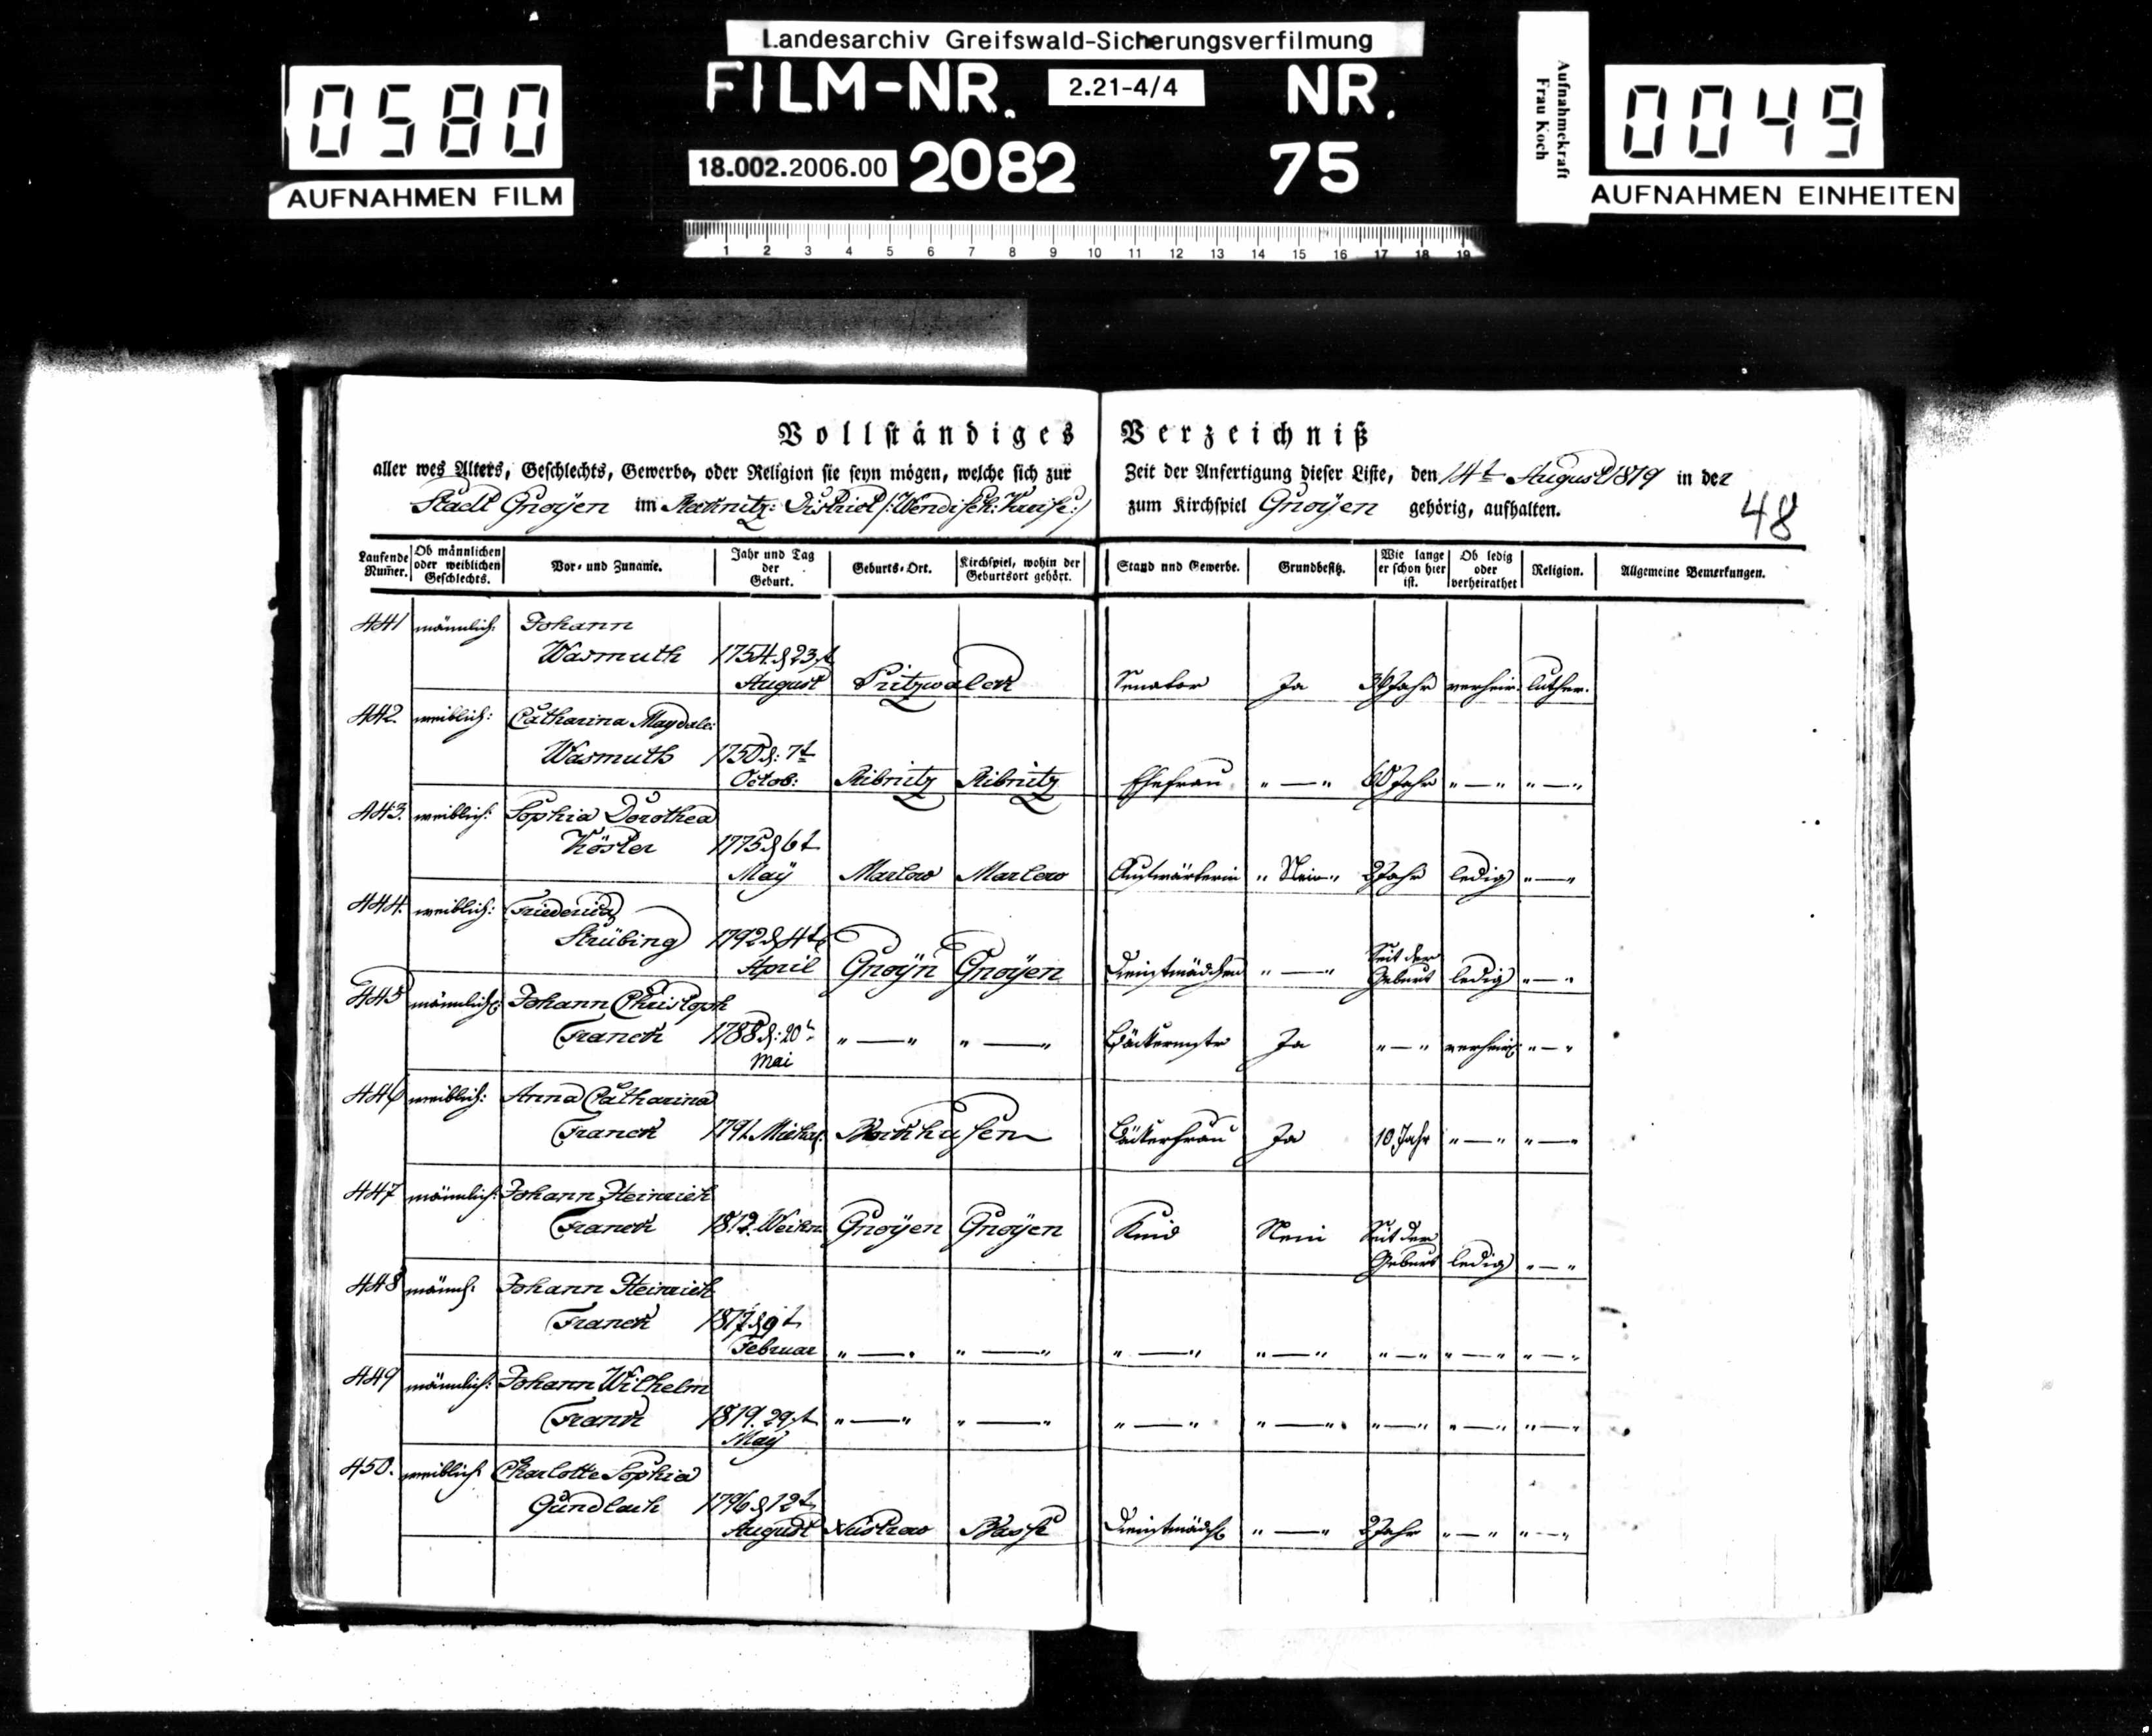 Landesarchiv Greifswald-Sicherungsverfilmung
0580
AUFNAHMEN FILM
FILM-NR. 2.21-4/4 NR.
18.002.2006.00 2082 75
Aufnahmekraft
Frau Koch
0049
AUFNAHMEN EINHEITEN
1 2 3 4 5 6 7 8 9 10 11 12 13 14 15 16 17 18 19
Vollständiges Verzeichniß
aller wes Alters, Geschlechts, Gewerbe, oder Religion sie seyn mögen, welche sich zur Zeit der Anfertigung dieser Liste, den 14t August 1819 in der
Stadt Gnoÿen im Recknitz: District /: Wendisch: Kreise :/ zum Kirchspiel Gnoÿen gehörig, aufhalten.
48
Laufende Num̃er. Ob männlichen oder weiblichen Geschlechts. Vor- und Zuname. Jahr und Tag der Geburt. Geburts-Ort. Kirchspiel, wohin der Geburtsort gehört. Stand und Gewerbe. Grundbesitz. Wie lange er schon hier ist. Ob ledig oder verheirathet Religion. Allgemeine Bemerkungen.
441 männlich: Johann
Wasmuth 1754. d 23t
August Pritzwalck Senator Ja Jahr verheir: luther.
442. weiblich: Catharina Magdale:
Wasmuth 1750 d: 7t
Octob: Ribnitz Ribnitz Ehefrau " — " 60 Jahr " — " " — "
443. weiblich: Sophia Dorothea
Köster 1775 d 6t
Maÿ Marlow Marlow Aufwärterin " Nein " 2 Jahr ledig " — "
444. weiblich: Friederica
Strübing 1792 d 4t
April Gnoÿn Gnoÿen Dienstmädchen " — " Seit der Geburt ledig " — "
445 männlich: Johann Christoph
Franck 1788 d: 20t
Mai " — " " — " Bäckermstr Ja " — " verheir: " — "
446 weiblich: Anna Catharina
Franck 1791. Michal: Bäckerfrau Ja 10 Jahr " — " " — "
447 männlich: Johann Heinrich
Franck 1812. Gnoÿen Gnoÿen Kind Nein Seit der
Geburt ledig " — "
448 männl: Johann Heinrich
Franck 1817 d 9t
Februar " — " " — " " — " " — " " — " " — " " — "
449 männlich: Johann Wilhelm
Franck 1819. 29t " — " " — " " — " " — " " — " " — " " — "
Maÿ
450. weiblich Charlotte Sophia
Gundlach 1796 d 12t
August Nustrow Basse Dienstmädch " — " 2 Jahr " — " " — "